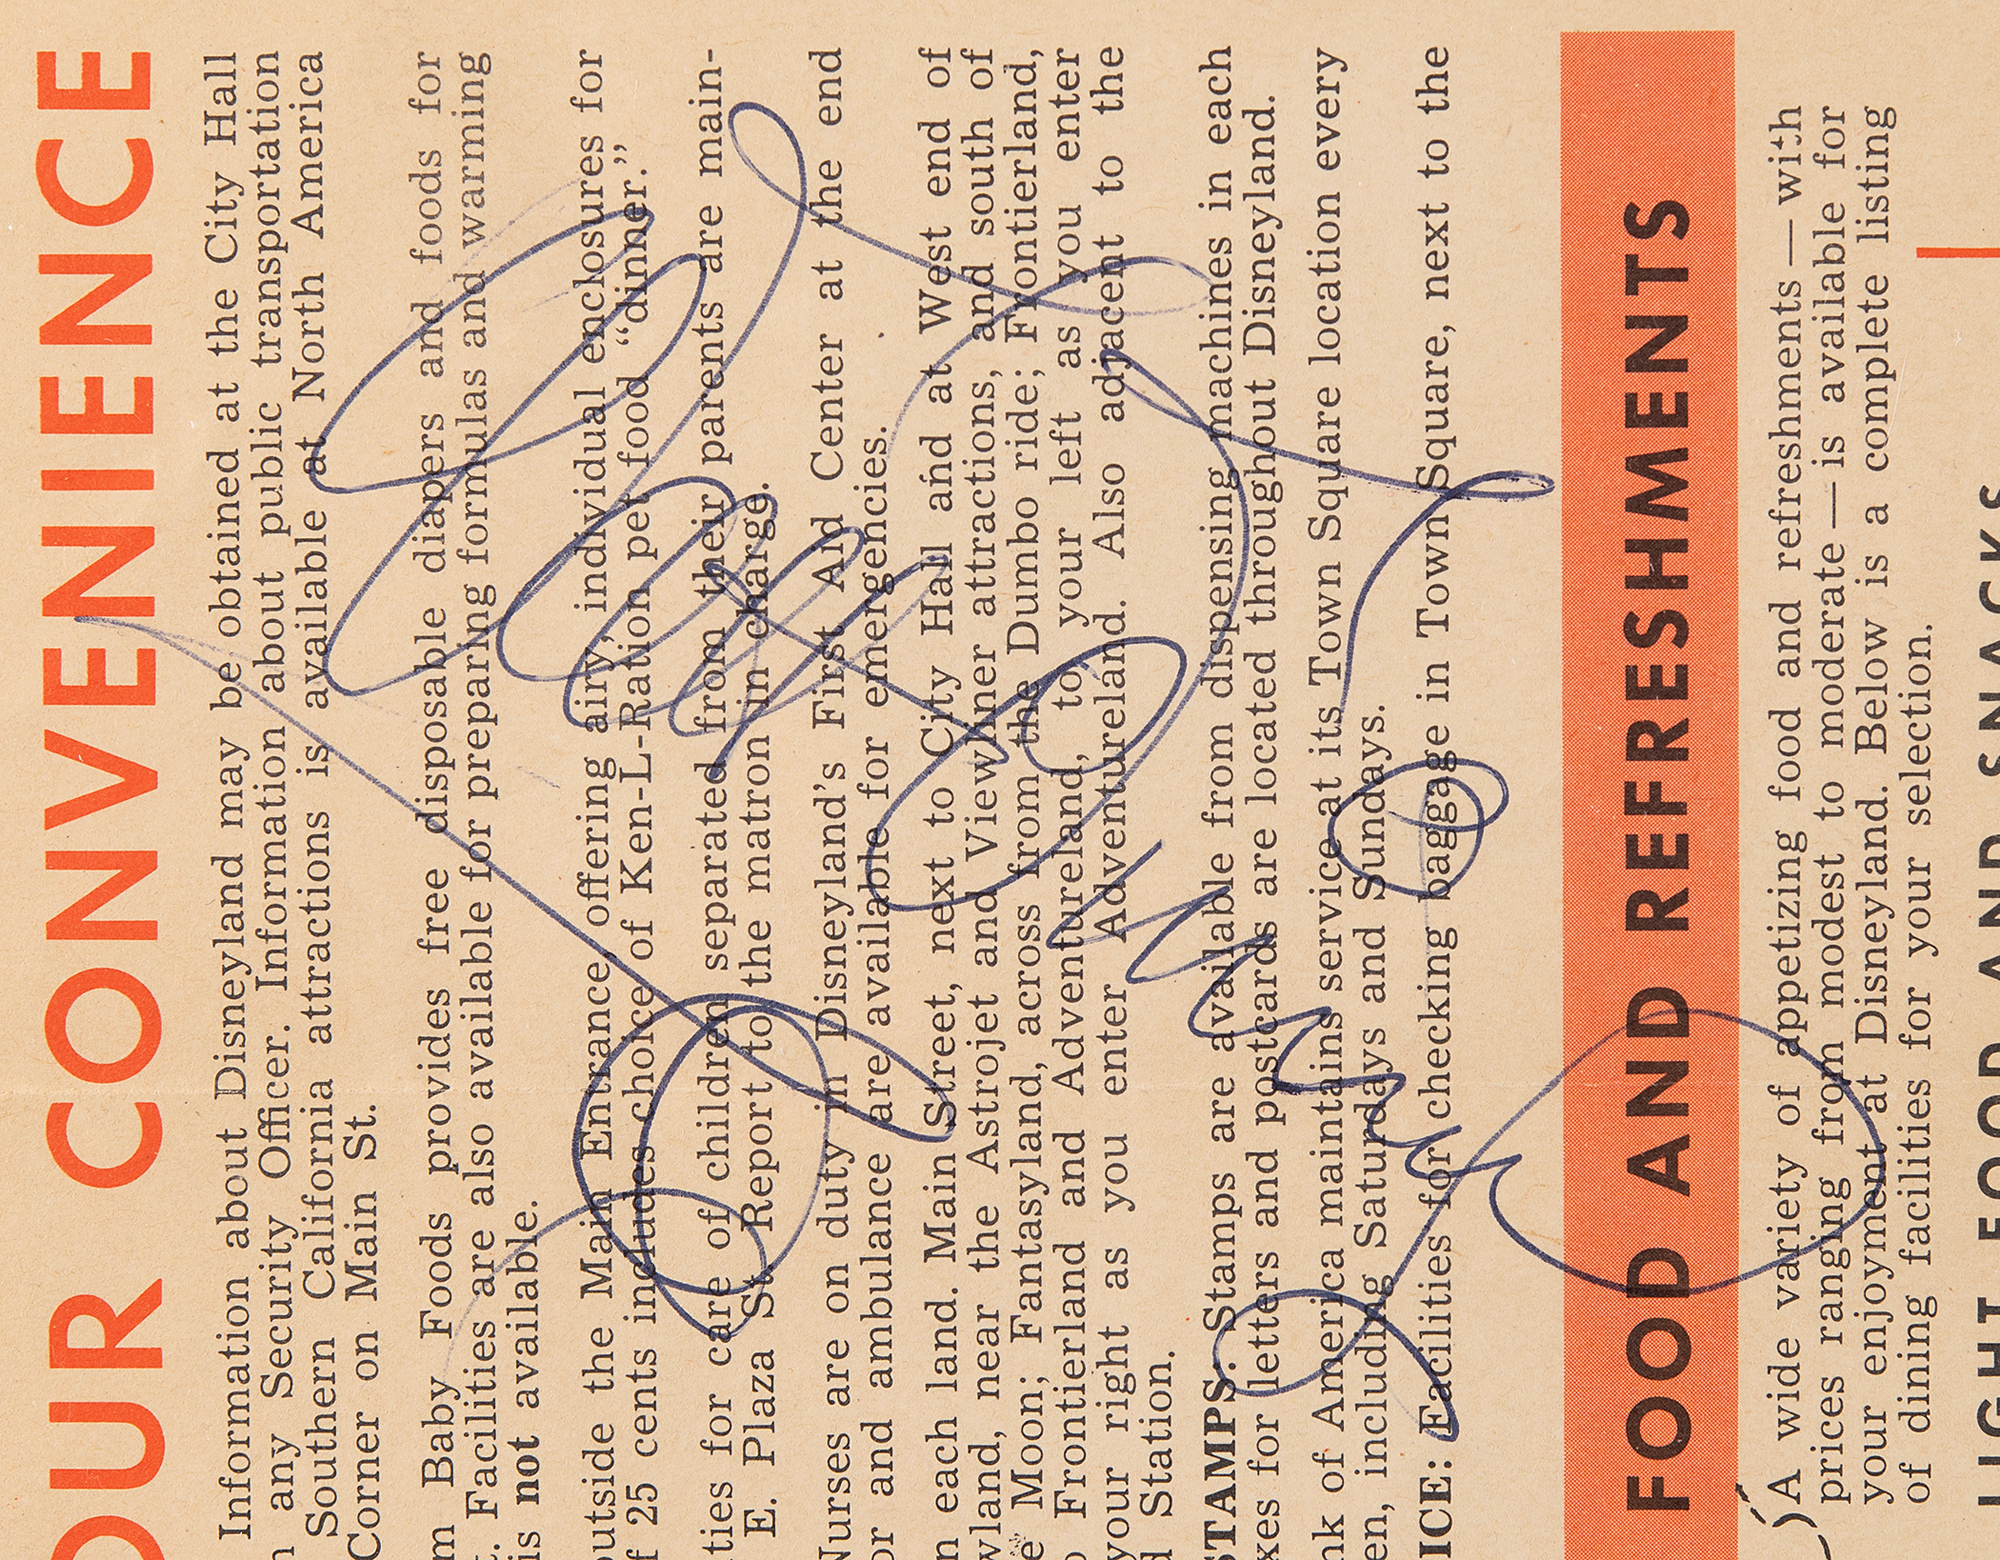 OUR CONVENIENCE
Information about Disneyland may be obtained at the City Hall
any Security Officer. Information about public transportation
Southern California attractions is available at North America
Corner on Main St.
Baby Foods provides free disposable diapers and foods for
Facilities are also available for preparing formulas and warming
is not available.
outside the Main Entrance, offering airy, individual enclosures for
25 cents includes choice of Ken-L-Ration pet food “dinner.”
for care of children separated from their parents are main-
E. Plaza St. Report to the matron in charge.
Nurses are on duty in Disneyland's First Aid Center at the end
or and ambulance are available for emergencies.
each land. Main Street, next to City Hall and at West end of
near the Astrojet and Viewliner attractions, and south of
Moon; Fantasyland, across from the Dumbo ride; Frontierland,
Frontierland and Adventureland, to your left as you enter
your right as you enter Adventureland. Also adjacent to the
Station.
STAMPS: Stamps are available from dispensing machines in each
for letters and postcards are located throughout Disneyland.
of America maintains service at its Town Square location every
including Saturdays and Sundays.
Facilities for checking baggage in Town Square, next to the
FOOD AND REFRESHMENTS
A wide variety of appetizing food and refreshments — with
prices ranging from modest to moderate — is available for
your enjoyment at Disneyland. Below is a complete listing
of dining facilities for your selection.
LIGHT FOOD AND SNACKS